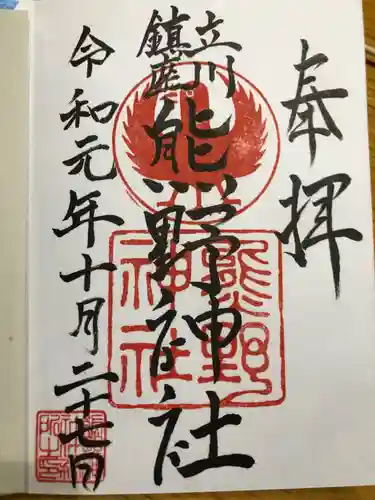 奉拝
立川
鎮座
熊野神社
熊野
神社
令和元年十月二十七日